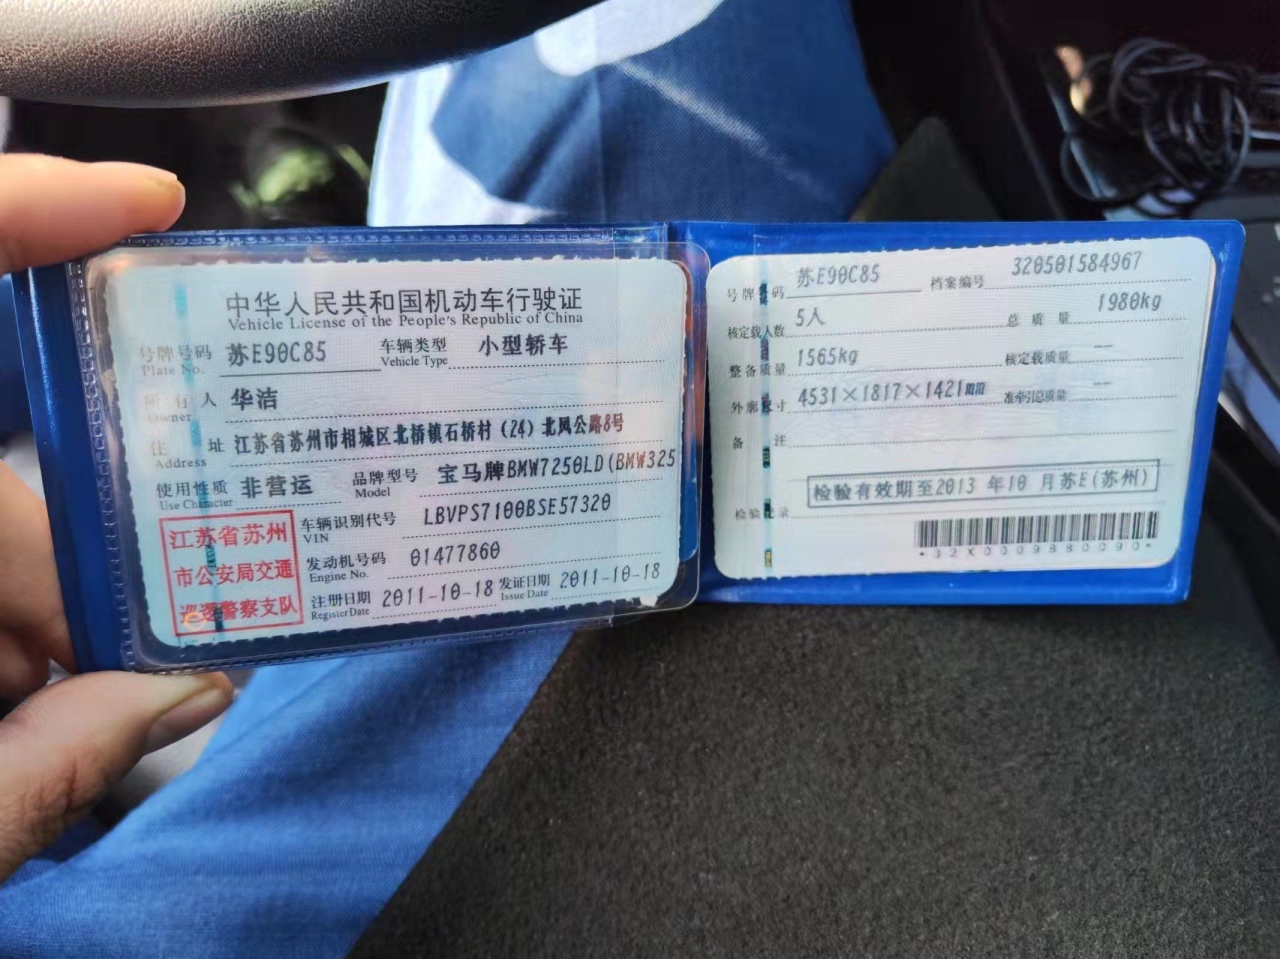 中华人民共和国机动车行驶证
Vehicle License of the People's Republic of China
号牌号码 苏E90C85 车辆类型 小型轿车
Plate No. Vehicle Type
所有人 华洁
Owner
住址 江苏省苏州市相城区北桥镇石桥村(24)北凤公路8号
Address
使用性质 非营运 品牌型号 宝马牌BMW7250LD(BMW325
Use Character Model
江苏省苏州
市公安局交通
巡逻警察支队
车辆识别代号 LBVPS7100BSE57320
VIN
发动机号码 01477860
Engine No.
注册日期 2011-10-18 发证日期 2011-10-18
Register Date Issue Date
号牌号码 苏E90C85 档案编号 320501584967
核定载人数 5人 总质量 1980kg
整备质量 1565kg 核定载质量 --
外廓尺寸 4531×1817×1421mm 准牵引总质量 --
备注
检验记录 检验有效期至2013年10月苏E(苏州)
*32X0009880090*